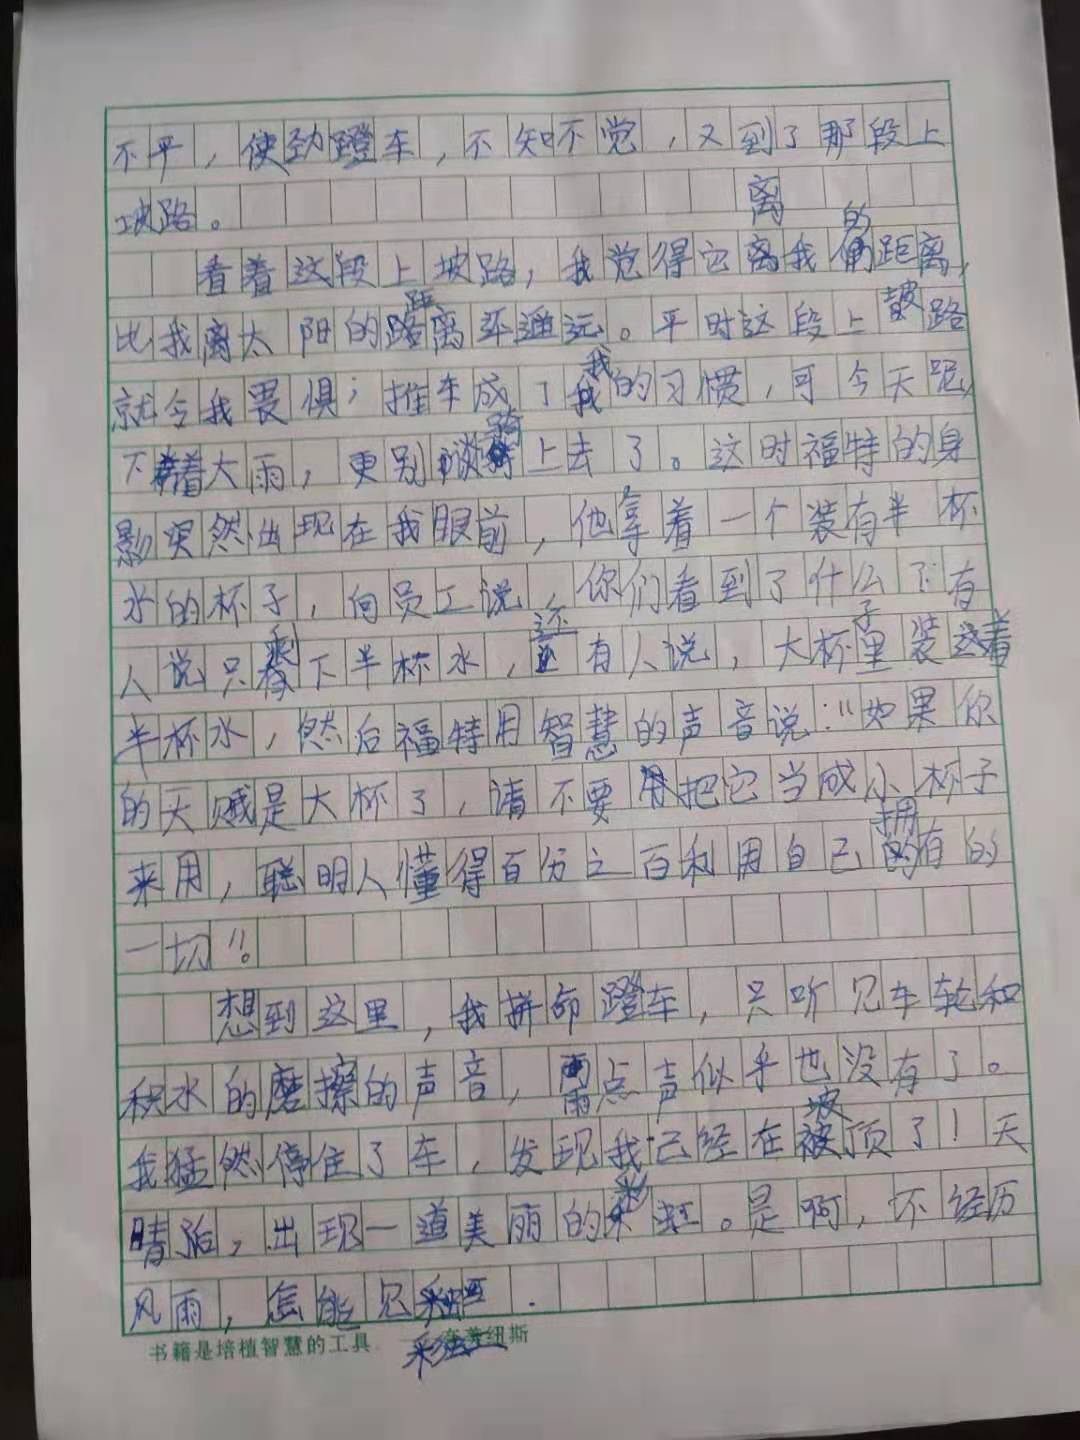 不平，使劲蹬车，不知不觉，又到了那段上
坡路。
看着这段上坡路，我觉得它离我的距离，
比我离太阳的距离还遥远。平时这段上坡路
就令我畏惧；推车成了我的习惯，可今天呢，
下着大雨，更别谈骑上去了。这时福特的身
影突然出现在我眼前，他拿着一个装有半杯
水的杯子，向员工说，你们看到了什么？有
人说只剩下半杯水，还有人说，大杯子里装着
半杯水，然后福特用智慧的声音说："如果你
的天赋是大杯子，请不要把它当成小杯子
来用，聪明人懂得百分之百利用自己拥有的
一切"。
想到这里，我拼命蹬车，只听见车轮和
积水的磨擦的声音，雨点声似乎也没有了。
我猛然停住了车，发现我已经在坡顶了！天
晴后，出现一道美丽的彩虹。是啊，不经历
风雨，怎能见彩虹.
书籍是培植智慧的工具 夸美纽斯